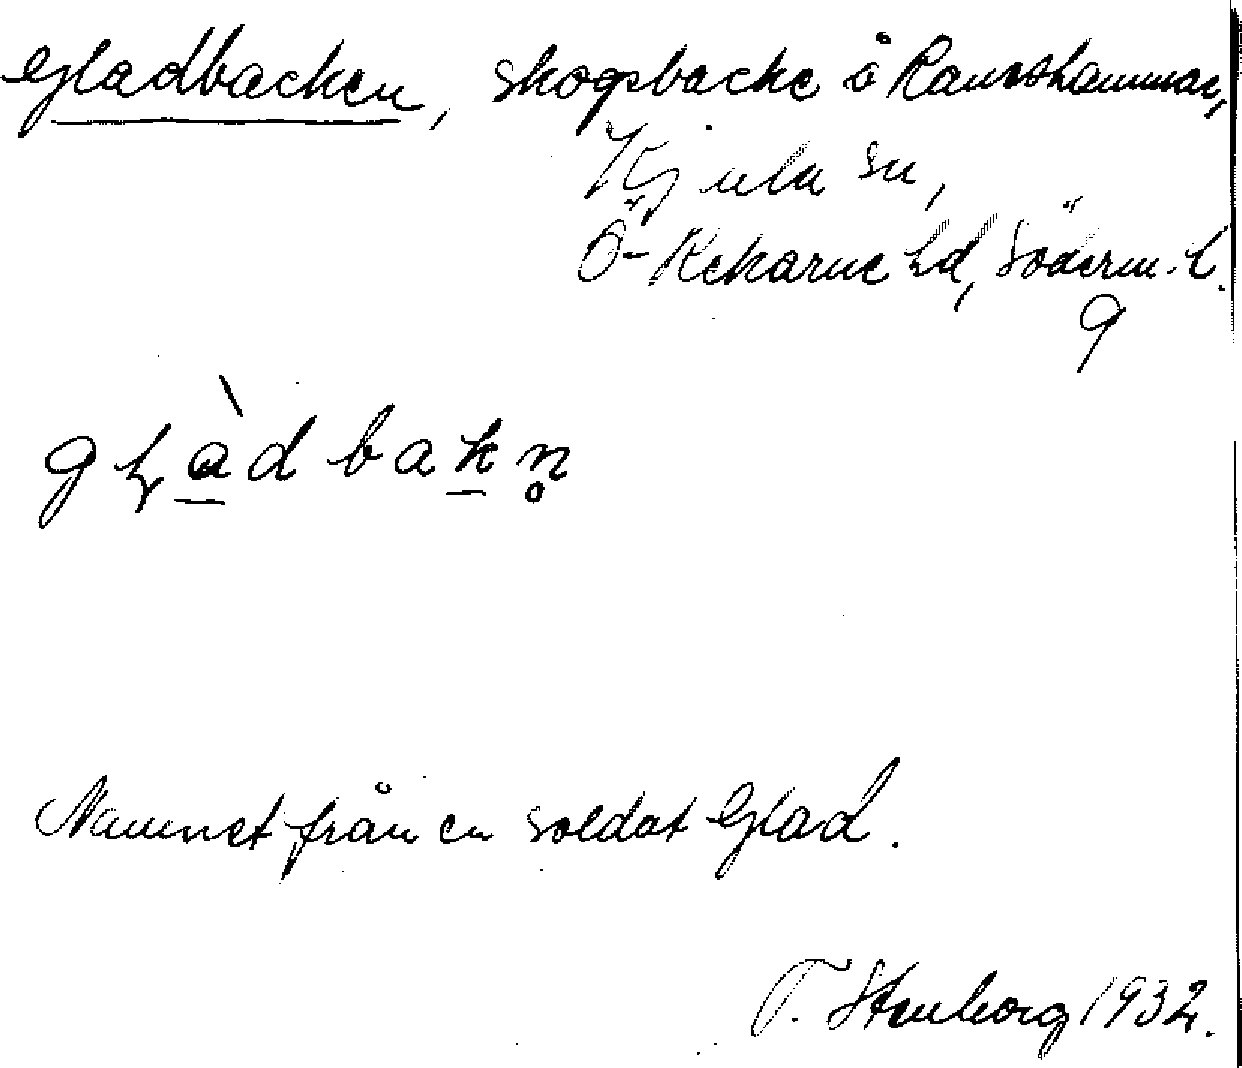 Gladbacken, skogsbacke å Ramshammar,
Kjula sn,
Ö-Rekarne hd, Söderm. l.
9
gḷàdbakn̥
Namnet från en soldat Glad.
T. Stenborg 1932.